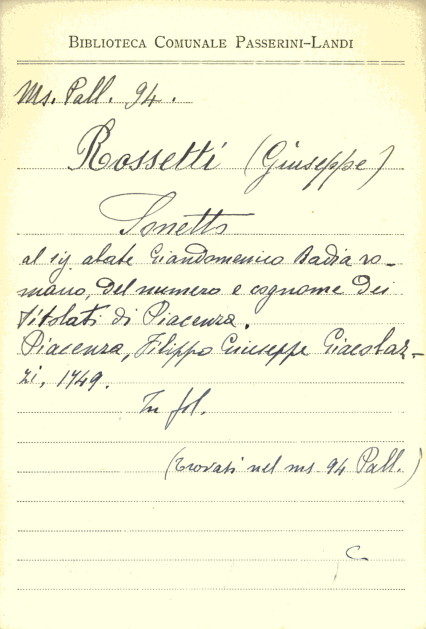 BIBLIOTECA COMUNALE PASSERINI-LANDI
Ms. Pall. 94.
Rossetti (Giuseppe)
Sonetto
al sig. abate Giandomenico Badia ro-
mano, del numero e cognome dei
titolati di Piacenza.
Piacenza, Filippo Giuseppe Giacopaz-
zi, 1749.
In fol.
(trovasi nel ms. 94 Pall.)
C